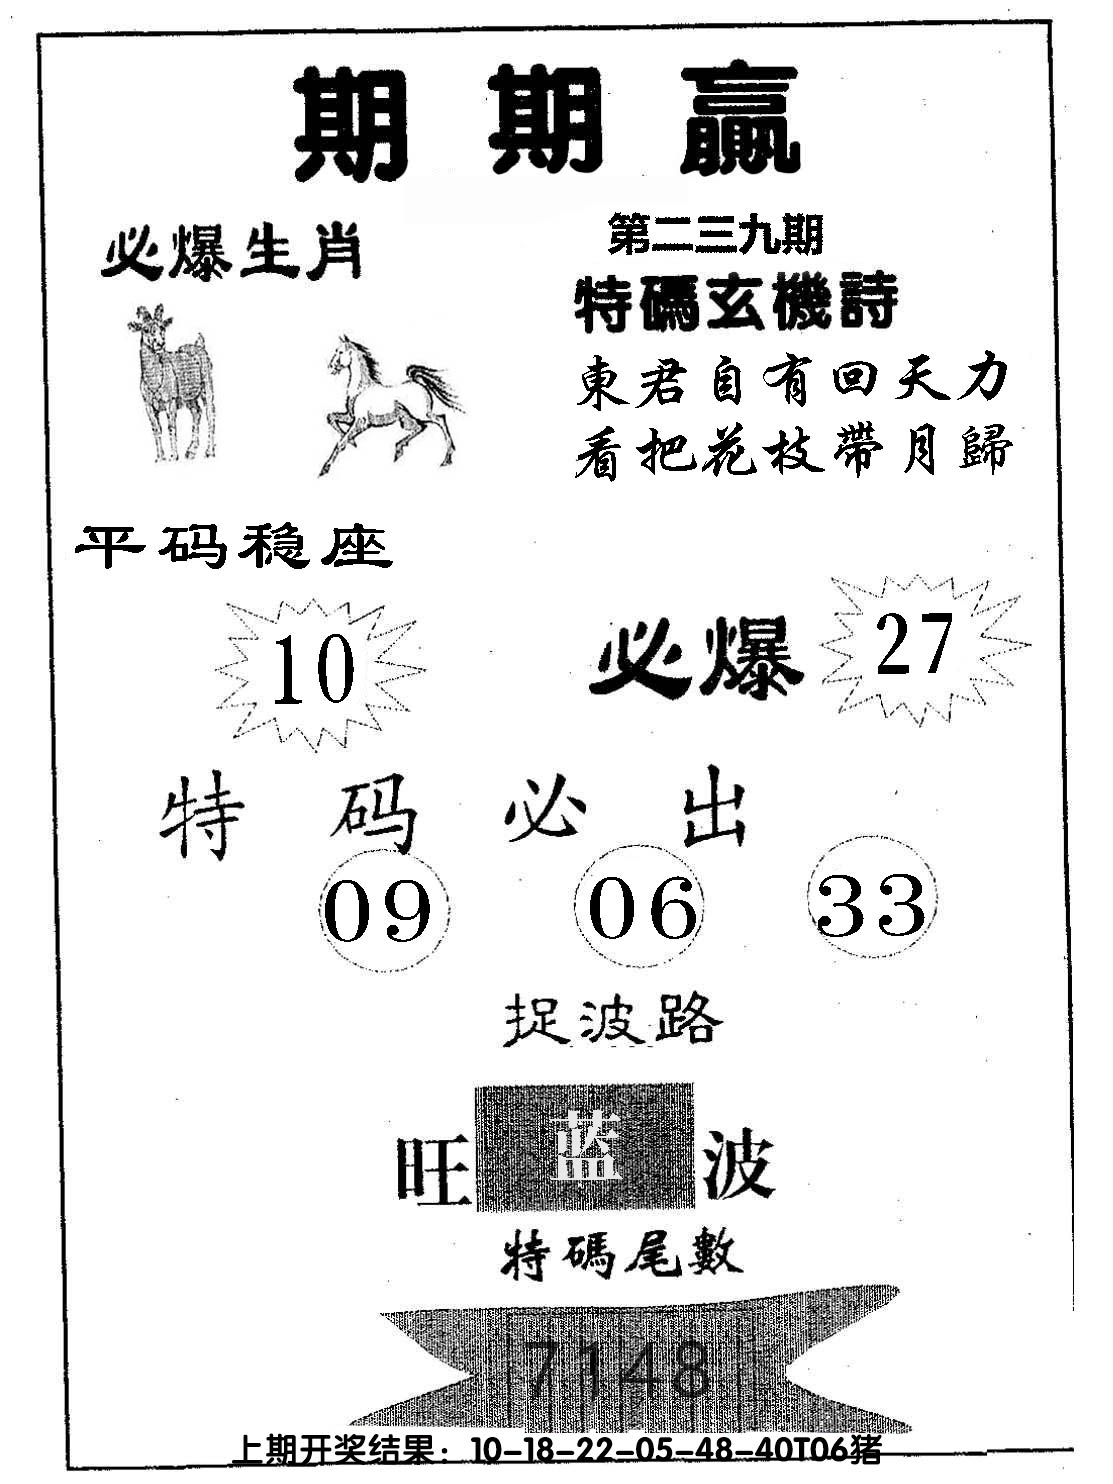 期期赢
必爆生肖
第二三九期
特碼玄機詩
東君自有回天力
看把花枝帶月歸
平码稳座
10
必爆
27
特码必出
09 06 33
捉波路
旺蓝波
特碼尾數
7148
上期开奖结果：10-18-22-05-48-40T06猪